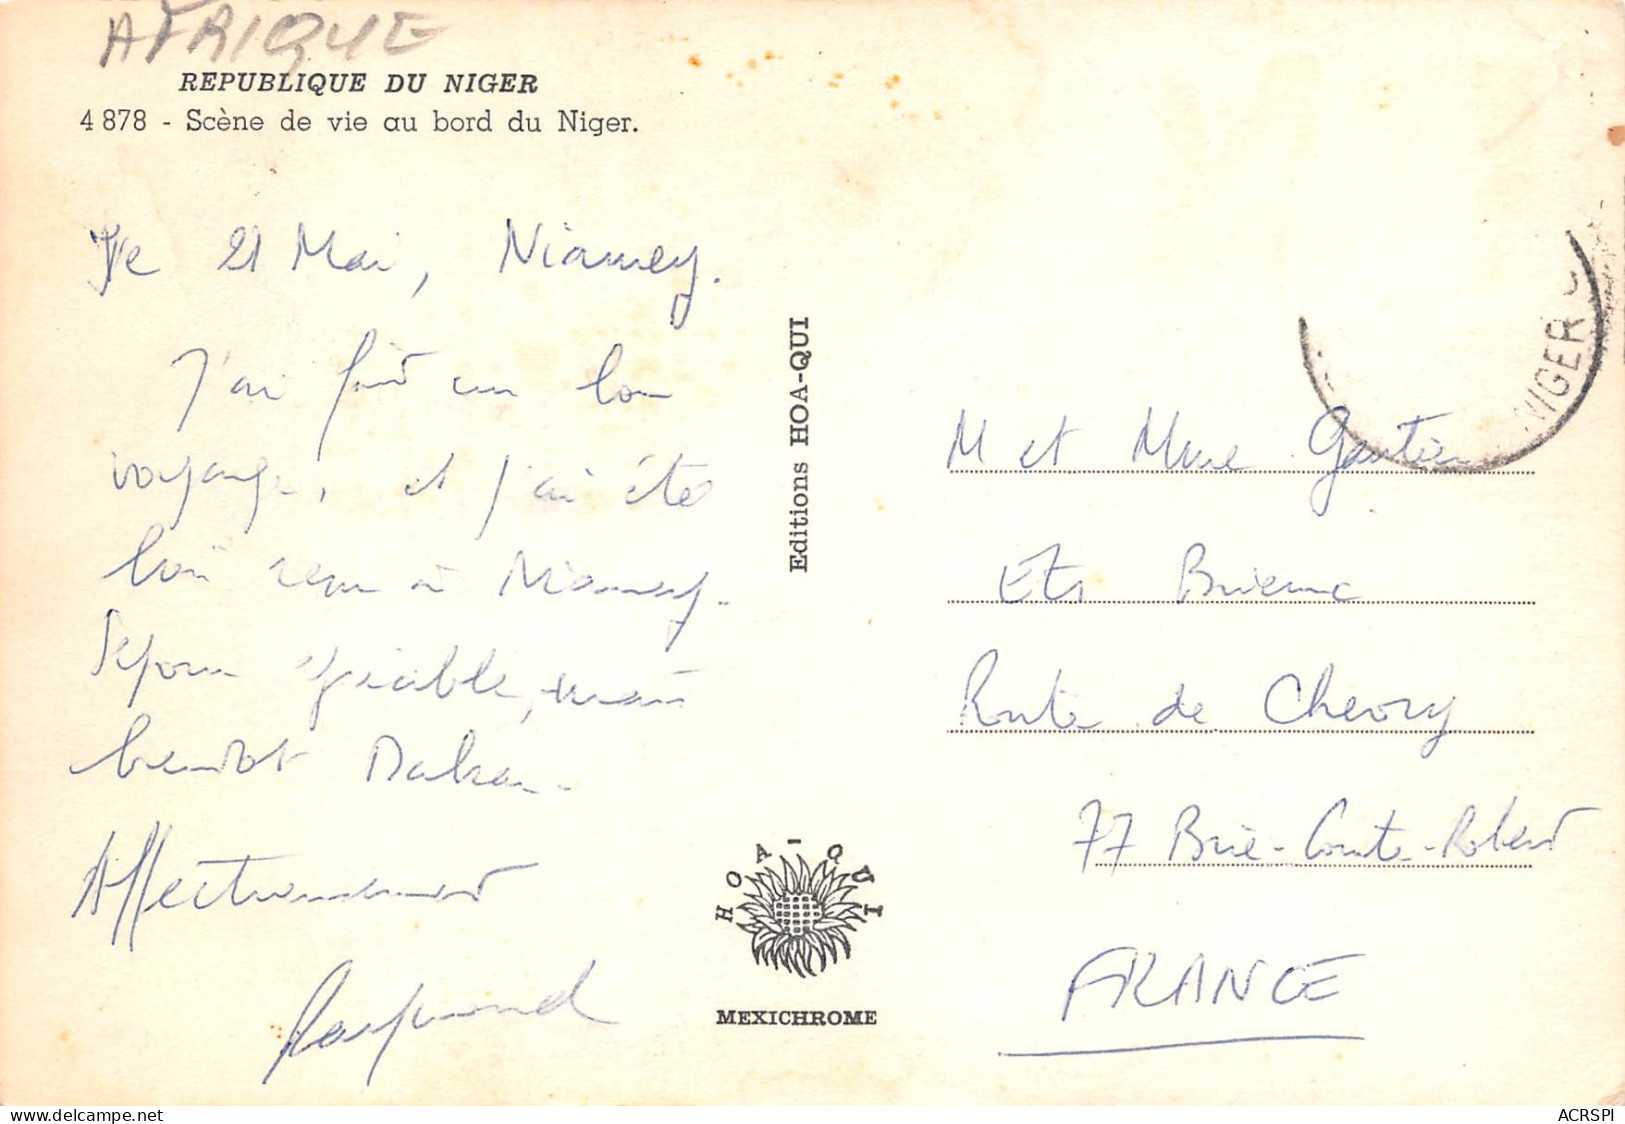 AFRIQUE
REPUBLIQUE DU NIGER
4 878 - Scène de vie au bord du Niger.
le 21 Mai, Niamey.
J'ai fait un bon
voyage, et j'ai été
bien reçu à Niamey.
Séjour agréable, mais
bientôt Dakar.
Affectueusement
Raymond
Editions HOA-QUI
HOA-QUI
MEXICHROME
NIGER
M et Mme Gautier
Ets Brienne
Route de Chevry
77 Brie-Comte-Robert
FRANCE
delcampe.net
ACRSPI